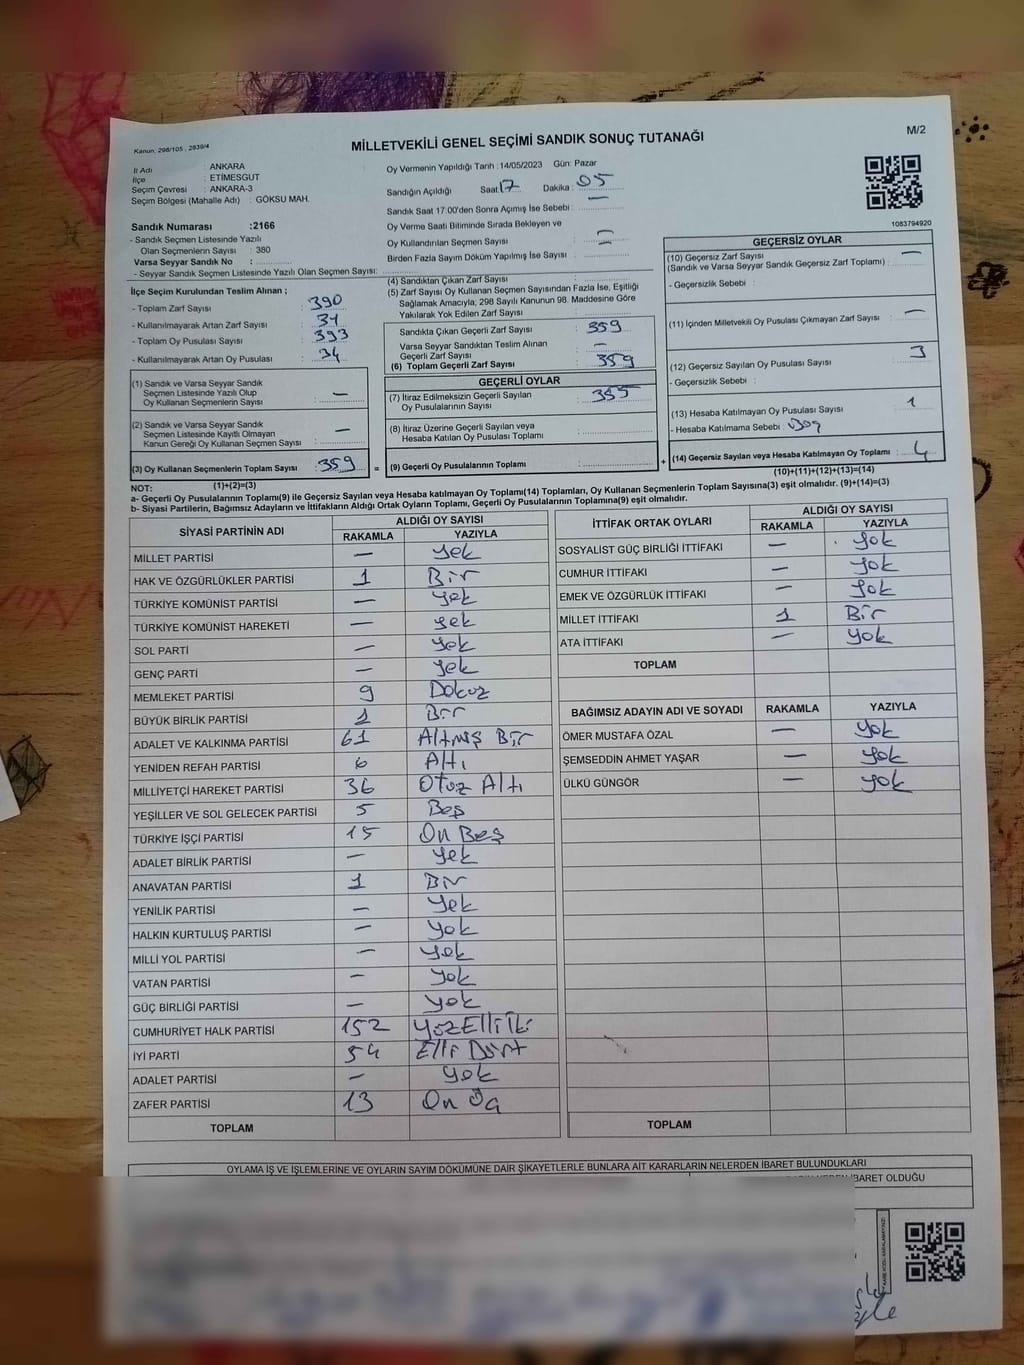 Kanun: 298/105 , 2839/4
MİLLETVEKİLİ GENEL SEÇİMİ SANDIK SONUÇ TUTANAĞI
M/2
İl Adı : ANKARA
İlçe : ETİMESGUT
Seçim Çevresi : ANKARA-3
Seçim Bölgesi (Mahalle Adı) : GÖKSU MAH.
Oy Vermenin Yapıldığı Tarih :14/05/2023 Gün: Pazar
Sandığın Açıldığı Saat: 17 Dakika : 05
Sandık Saat 17:00'den Sonra Açımış İse Sebebi : —
Oy Verme Saati Bitiminde Sırada Bekleyen ve
Oy Kullandırılan Seçmen Sayısı : —
Birden Fazla Sayım Döküm Yapılmış İse Sayısı : —
1083794920
Sandık Numarası :2166
- Sandık Seçmen Listesinde Yazılı
Olan Seçmenlerin Sayısı : 380
Varsa Seyyar Sandık No :
- Seyyar Sandık Seçmen Listesinde Yazılı Olan Seçmen Sayısı:
İlçe Seçim Kurulundan Teslim Alınan ;
- Toplam Zarf Sayısı : 390
- Kullanılmayarak Artan Zarf Sayısı : 31
- Toplam Oy Pusulası Sayısı : 393
- Kullanılmayarak Artan Oy Pusulası : 34
(1) Sandık ve Varsa Seyyar Sandık
Seçmen Listesinde Yazılı Olup
Oy Kullanan Seçmenlerin Sayısı : —
(2) Sandık ve Varsa Seyyar Sandık
Seçmen Listesinde Kayıtlı Olmayan
Kanun Gereği Oy Kullanan Seçmen Sayısı : —
(3) Oy Kullanan Seçmenlerin Toplam Sayısı : 359 =
(1)+(2)=(3)
(4) Sandıktan Çıkan Zarf Sayısı :
(5) Zarf Sayısı Oy Kullanan Seçmen Sayısından Fazla İse, Eşitliği
Sağlamak Amacıyla; 298 Sayılı Kanunun 98. Maddesine Göre
Yakılarak Yok Edilen Zarf Sayısı :
Sandıkta Çıkan Geçerli Zarf Sayısı : 359
Varsa Seyyar Sandıktan Teslim Alınan
Geçerli Zarf Sayısı : —
(6) Toplam Geçerli Zarf Sayısı : 359
GEÇERLİ OYLAR
(7) İtiraz Edilmeksizin Geçerli Sayılan
Oy Pusulalarının Sayısı : 355
(8) İtiraz Üzerine Geçerli Sayılan veya
Hesaba Katılan Oy Pusulası Toplamı :
(9) Geçerli Oy Pusulalarının Toplamı : +
GEÇERSİZ OYLAR
(10) Geçersiz Zarf Sayısı
(Sandık ve Varsa Seyyar Sandık Geçersiz Zarf Toplamı) : —
- Geçersizlik Sebebi :
(11) İçinden Milletvekili Oy Pusulası Çıkmayan Zarf Sayısı : —
(12) Geçersiz Sayılan Oy Pusulası Sayısı : 3
- Geçersizlik Sebebi :
(13) Hesaba Katılmayan Oy Pusulası Sayısı : 1
- Hesaba Katılmama Sebebi : Boş
(14) Geçersiz Sayılan veya Hesaba Katılmayan Oy Toplamı : 4
(10)+(11)+(12)+(13)=(14)
NOT:
a- Geçerli Oy Pusulalarının Toplamı(9) ile Geçersiz Sayılan veya Hesaba katılmayan Oy Toplamı(14) Toplamları, Oy Kullanan Seçmenlerin Toplam Sayısına(3) eşit olmalıdır. (9)+(14)=(3)
b- Siyasi Partilerin, Bağımsız Adayların ve İttifakların Aldığı Ortak Oyların Toplamı, Geçerli Oy Pusulalarının Toplamına(9) eşit olmalıdır.
SİYASİ PARTİNİN ADI ALDIĞI OY SAYISI
RAKAMLA YAZIYLA
MİLLET PARTİSİ — Yok
HAK VE ÖZGÜRLÜKLER PARTİSİ 1 Bir
TÜRKİYE KOMÜNİST PARTİSİ — Yok
TÜRKİYE KOMÜNİST HAREKETİ — Yok
SOL PARTİ — Yok
GENÇ PARTİ — Yok
MEMLEKET PARTİSİ 9 Dokuz
BÜYÜK BİRLİK PARTİSİ 1 Bir
ADALET VE KALKINMA PARTİSİ 61 Altmış Bir
YENİDEN REFAH PARTİSİ 6 Altı
MİLLİYETÇİ HAREKET PARTİSİ 36 Otuz Altı
YEŞİLLER VE SOL GELECEK PARTİSİ 5 Beş
TÜRKİYE İŞÇİ PARTİSİ 15 On Beş
ADALET BİRLİK PARTİSİ — Yok
ANAVATAN PARTİSİ 1 Bir
YENİLİK PARTİSİ — Yok
HALKIN KURTULUŞ PARTİSİ — Yok
MİLLİ YOL PARTİSİ — Yok
VATAN PARTİSİ — Yok
GÜÇ BİRLİĞİ PARTİSİ — Yok
CUMHURİYET HALK PARTİSİ 152 Yüz Elli İki
İYİ PARTİ 54 Elli Dört
ADALET PARTİSİ — Yok
ZAFER PARTİSİ 13 On Üç
TOPLAM
İTTİFAK ORTAK OYLARI ALDIĞI OY SAYISI
RAKAMLA YAZIYLA
SOSYALİST GÜÇ BİRLİĞİ İTTİFAKI — Yok
CUMHUR İTTİFAKI — Yok
EMEK VE ÖZGÜRLÜK İTTİFAKI — Yok
MİLLET İTTİFAKI 1 Bir
ATA İTTİFAKI — Yok
TOPLAM
BAĞIMSIZ ADAYIN ADI VE SOYADI RAKAMLA YAZIYLA
ÖMER MUSTAFA ÖZAL — Yok
ŞEMSEDDİN AHMET YAŞAR — Yok
ÜLKÜ GÜNGÖR — Yok
TOPLAM
OYLAMA İŞ VE İŞLEMLERİNE VE OYLARIN SAYIM DÖKÜMÜNE DAİR ŞİKAYETLERLE BUNLARA AİT KARARLARIN NELERDEN İBARET BULUNDUKLARI
İBARET OLDUĞU